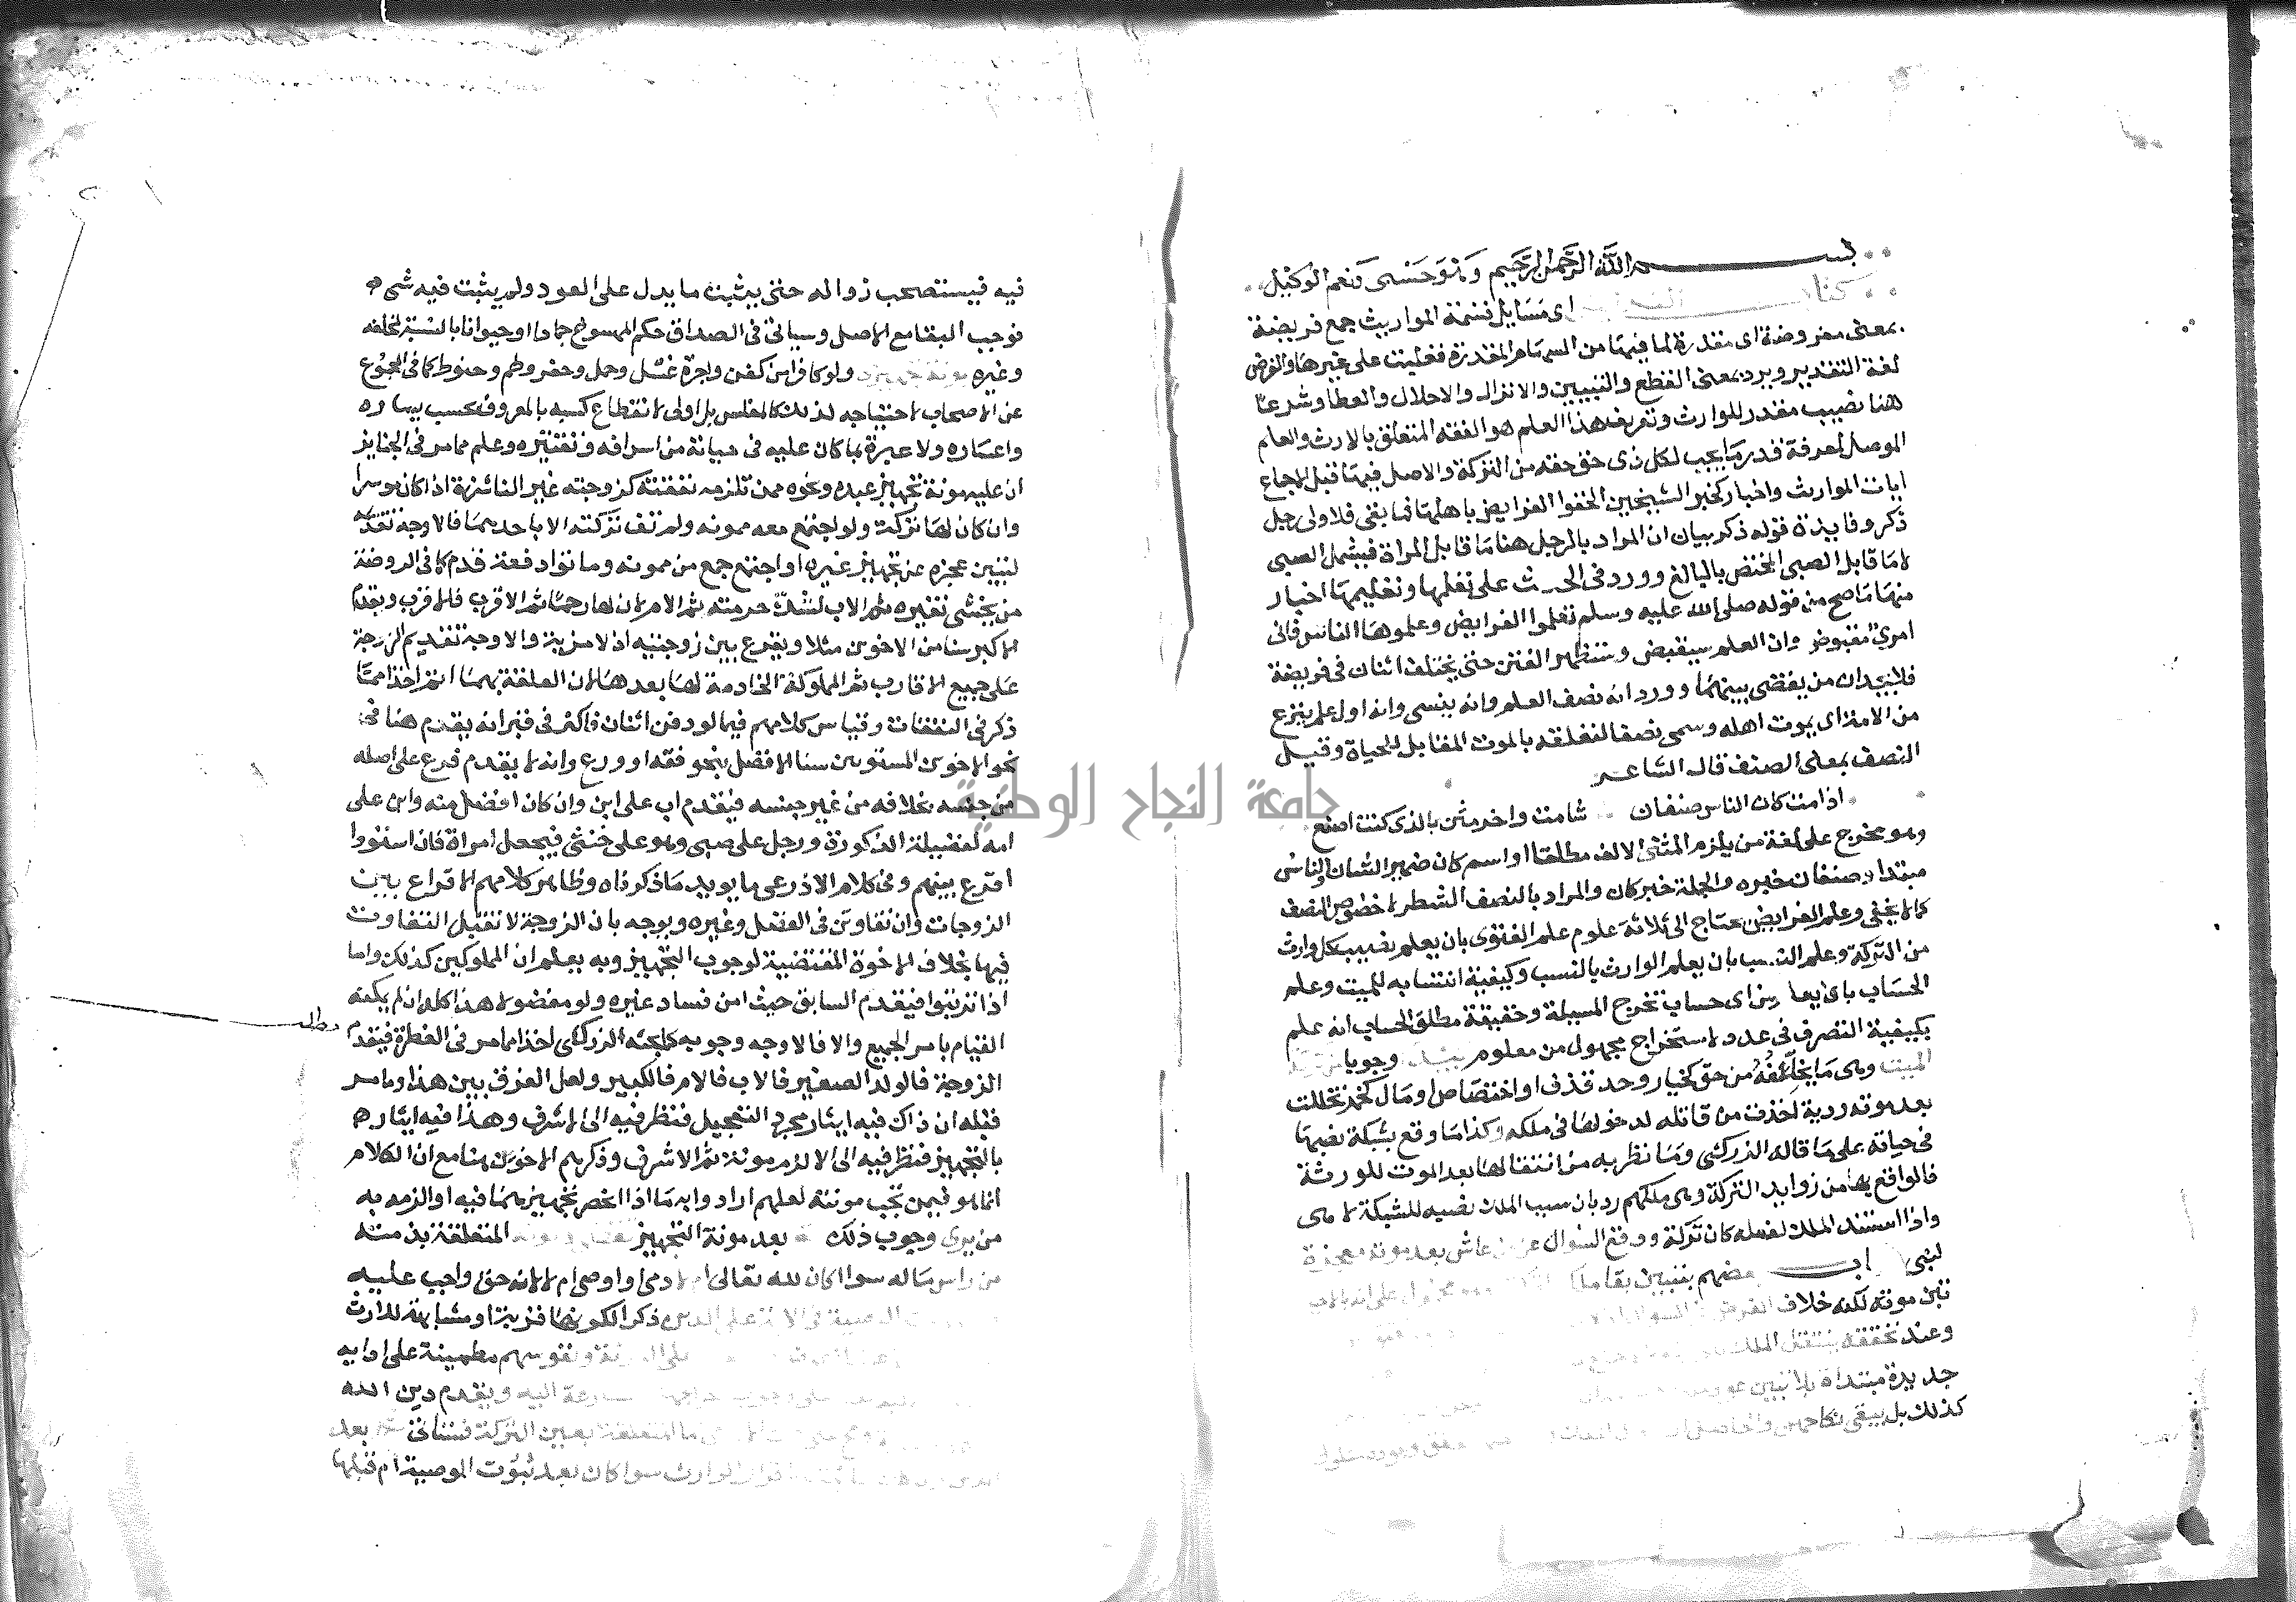 بسم الله الرحمن الرحيم وهو حسبى ونعم الوكيل
كتاب الفرايض اى مسايل قسمة المواريث جمع فريضة
بمعنى مفروضة اى مقدرة لما فيها من السهام المقدرة فغلبت على غيرها والفرض
لغة التقدير ويرد بمعنى القطع والتبيين والانزال والاحلال والعطا وشرعا
هنا نصيب مقدر للوارث وتعريف هذا العلم هو الفقه المتعلق بالارث والعلم
الموصل لمعرفة قدر ما يجب لكل ذى حق حقه من التركة والاصل فيها قبل الاجماع
ايات المواريث واخبار كخبر الشيخين الحقوا الفرايض باهلها فما بقى فلاولى رجل
ذكر وفايدة قوله ذكر بيان ان المراد بالرجل هنا ما قابل المراة فيشمل الصبى
لا ما قابل الصبى المختص بالبالغ وورد فى الحث على تعلمها وتعليمها اخبار
منها ما صح من قوله صلى الله عليه وسلم تعلموا الفرايض وعلموها الناس فانى
امرئ مقبوض وان العلم سيقبض وستظهر الفتن حتى يختلف اثنان فى فريضة
فلا يجدان من يقضى بينهما وورد انه نصف العلم وانه ينسى وانه اول علم ينزع
من الامة اى يموت اهله وسمى نصفا لتعلقه بالموت المقابل للحياة وقيل
النصف بمعنى الصنف قال الشاعر
اذا مت كان الناس صنفان شامت واخر مثن بالذى كنت اصنع
وهو مخرج على لغة من يلزم المثنى الالف مطلقا او اسم كان ضمير الشان والناس
مبتدا وصنفان خبره والجملة خبر كان والمراد بالنصف الشطر لا خصوص النصف
كما لا يخفى وعلم الفرايض يحتاج الى ثلاثة علوم علم الفتوى بان يعلم نصيب كل وارث
من التركة وعلم النسب بان يعلم الوارث بالنسب وكيفية انتسابه للميت وعلم
الحساب بان يعلم من اى حساب تخرج المسيلة وحقيقة مطلق الحساب انه علم
بكيفية التصرف فى عدد لاستخراج مجهول من معلوم يبدا وجوبا من تركة
الميت وهى ما يخلفه من حق كخيار وحد قذف او اختصاص او مال كخمر تخللت
بعد موته ودية اخذت من قاتله لدخولها فى ملكه وكذا ما وقع بشبكة نصبها
فى حياته على ما قاله الزركشى وما نظر به من انتقالها بعد الموت للورثة
فالواقع بها من زوايد التركة وهى ملكهم رد بان سبب الملك نصبه للشبكة لا هى
واذا استند الملك لفعله كان تركة ووقع السوال عن من عاش بعد موته معجزة
لنبى اب بعضهم بتبين بقا ملك
تبين موته لكنه خلاف الفرض
وعند تحققه ينتقل الملك
جديدة مبتداة بلا تبين عود
كذلك بل يبقى نكاحهن والحاصل
فيه فيستصحب زواله حتى يثبت ما يدل على العود ولم يثبت فيه شى
فوجب البقا مع الاصل وسياتى فى الصداق حكم الممسوخ جمادا او حيوانا بالنسبة لمخلفه
وغيره بمونة تجهيزه ولو كافرا من كفن واجرة غسل وحمل وحفر وطم وحنوط كما فى المجموع
عن الاصحاب لاحتياجه لذلك كالمفلس بل اولى لانقطاع كسبه بالمعروف بحسب يساره
واعساره ولا عبرة بما كان عليه فى حياته من اسرافه وتقتيره وعلم مما مر فى الجنايز
ان عليه مونة تجهيز عبده ونحوه ممن تلزمه نفقته كزوجته غير الناشزة اذا كان موسرا
وان كان لها تركة ولو اجتمع معه ممونه ولم تف تركته الا باحدهما فالاوجه تقدمه
لتبين عجزه عن تجهيز غيره او اجتمع جمع من ممونه وماتوا دفعة قدم كما فى الروضة
من يخشى تغيره ثم الاب لشدة حرمته ثم الام لان لها رحما ثم الاقرب فالاقرب ويقدم
الاكبر سنا من الاخوين مثلا ويقرع بين زوجتيه اذ لا مزية والاوجه تقديم الزوجة
على جميع الاقارب ثم المملوكة الخادمة لها بعدها لان العلقة بهما اتم اخذا مما
ذكر فى النفقات وقياس كلامهم فيما لو دفن اثنان فاكثر فى قبر انه يقدم هنا فى
نحو الاخوين المستويين سنا الافضل بنحو فقه او ورع وانه لا يقدم فرع على اصله
من جنسه بخلافه من غير جنسه فيقدم اب على ابن وان كان افضل منه وابن على
امه لفضيلة الذكورة ورجل على صبى وهو على خنثى فيجعل امراة فان استووا
اقرع بينهم وفى كلام الاذرعى ما يويد ما ذكرناه وظاهر كلامهم الاقراع بين
الزوجات وان تفاوتن فى الفضل وغيره ويوجه بان الزوجة لا تقبل التفاوت
فيها بخلاف الاخوة المقتضية لوجوب التجهيز وبه يعلم ان المملوكين كذلك واما
اذا ترتبوا فيقدم السابق حيث امن فساد غيره ولو مفضولا هذا كله ان لم يمكنه
القيام بامر الجميع والا فالاوجه وجوبه كما بحثه الزركشى اخذا مما مر فى الفطرة فيقدم
الزوجة فالولد الصغير فالاب فالام فالكبير ولعل الفرق بين هذا وما مر
قبله ان ذاك فيه ايثار مجرد التعجيل فنظر فيه الى الاشرف وهذا فيه ايثارهم
بالتجهيز فنظر فيه الى الالزم مونة ثم الاشرف وذكرهم الاخوين هنا مع ان الكلام
انما هو فيمن تجب مونته لعلهم ارادوا به ما اذا انحصر تجهيزهما فيه او الزمه به
من يرى وجوب ذلك بعد مونة التجهيز المتعلقة بذمته
من راس ماله سوا كان لله تعالى ام لادمى اوصى ام لا لانه حق واجب عليه
الوصية فى الاية على الدين ذكرا لكونها قربة او مشابهة للارث
ونفوسهم مطمينة على ادايه
والمسارعة اليه ويقدم دين الله
اما المتعلقة بعين التركة فستاتى بعد
الوارث سوا كان بعد ثبوت الوصية ام قبلها
جامعة النجاح الوطنية